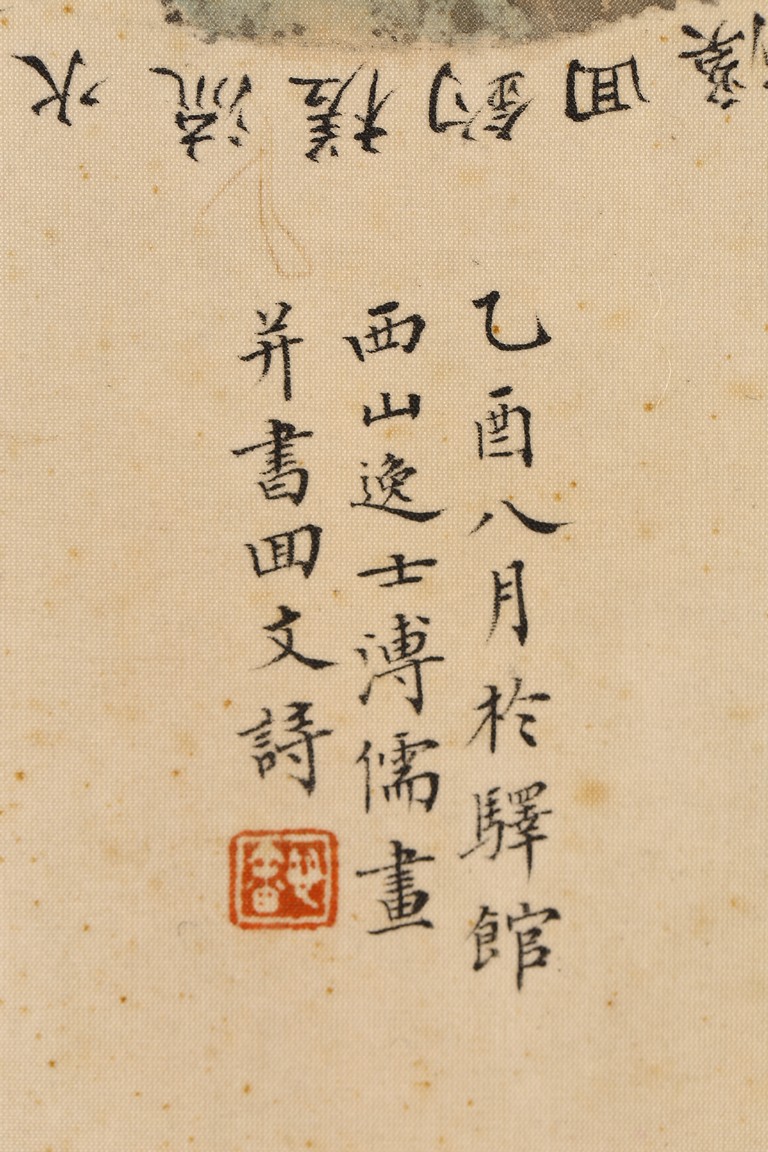 囬釣槎流水
乙酉八月於驛館
西山逸士溥儒畫
并書囬文詩